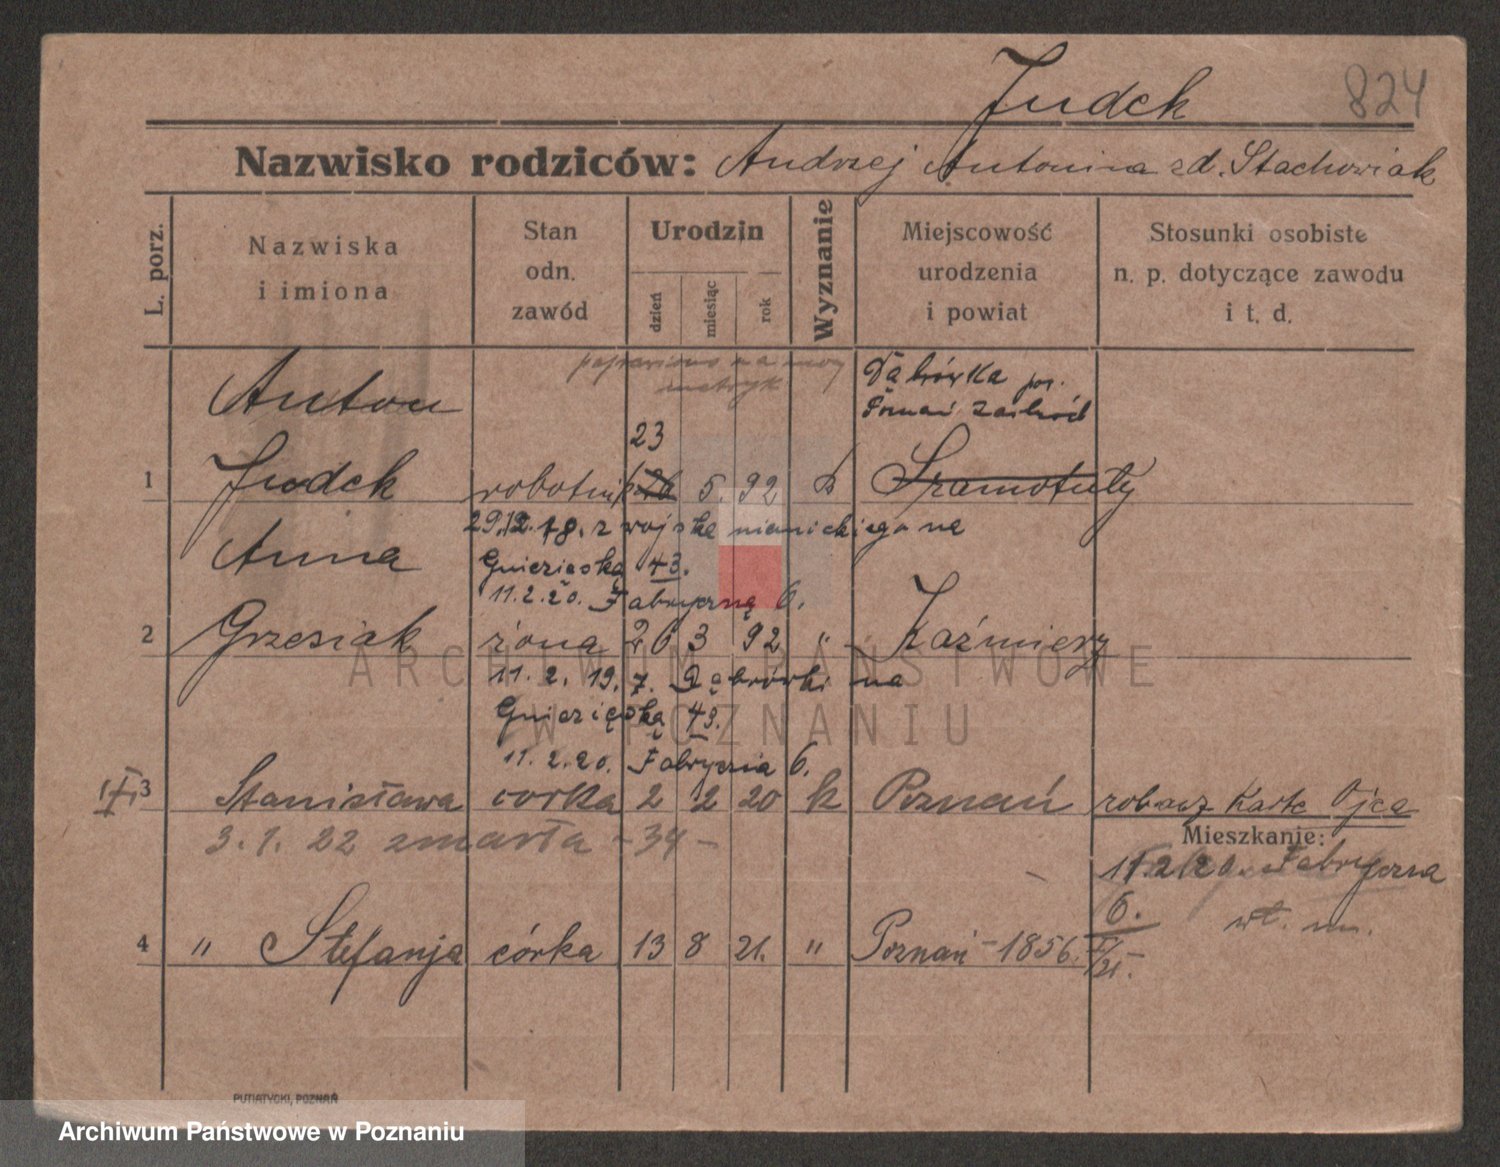 Judek 824
Nazwisko rodziców: Andrzej Antonina zd. Stachowiak
L. porz.
Nazwiska
i imiona
Stan
odn.
zawód
Urodzin
dzień
miesiąc
rok
Wyznanie
Miejscowość
urodzenia
i powiat
Stosunki osobiste
n. p. dotyczące zawodu
i t. d.
poprawiono na mocy
metryk
Dąbrówka pow.
Poznań zachód
Anton
23
1 Judek robotnik 26 5. 92 k Szamotuły
29.12.18. z wojska niemieckiego na
Anna
Gnieźnieńską 43.
11.2.20. Fabryczną 6.
2 Grzesiak żona 26 3 92 " Kaźmierz
11. 2. 19. z Dąbrówki na
Gnieźnieńską 43.
11.2.20. Fabryczna 6.
3 Stanisława córka 2 2 20 k Poznań zobacz Kartę Ojca
3. 1. 22 zmarła - 34 -
Mieszkanie:
11.2.20. Fabryczna
6.
4 " Stefanja córka 13 8 21. " Poznań - 1856.
/21.
PUTIATYCKI, POZNAŃ
ARCHIWUM PAŃSTWOWE
W POZNANIU
Archiwum Państwowe w Poznaniu